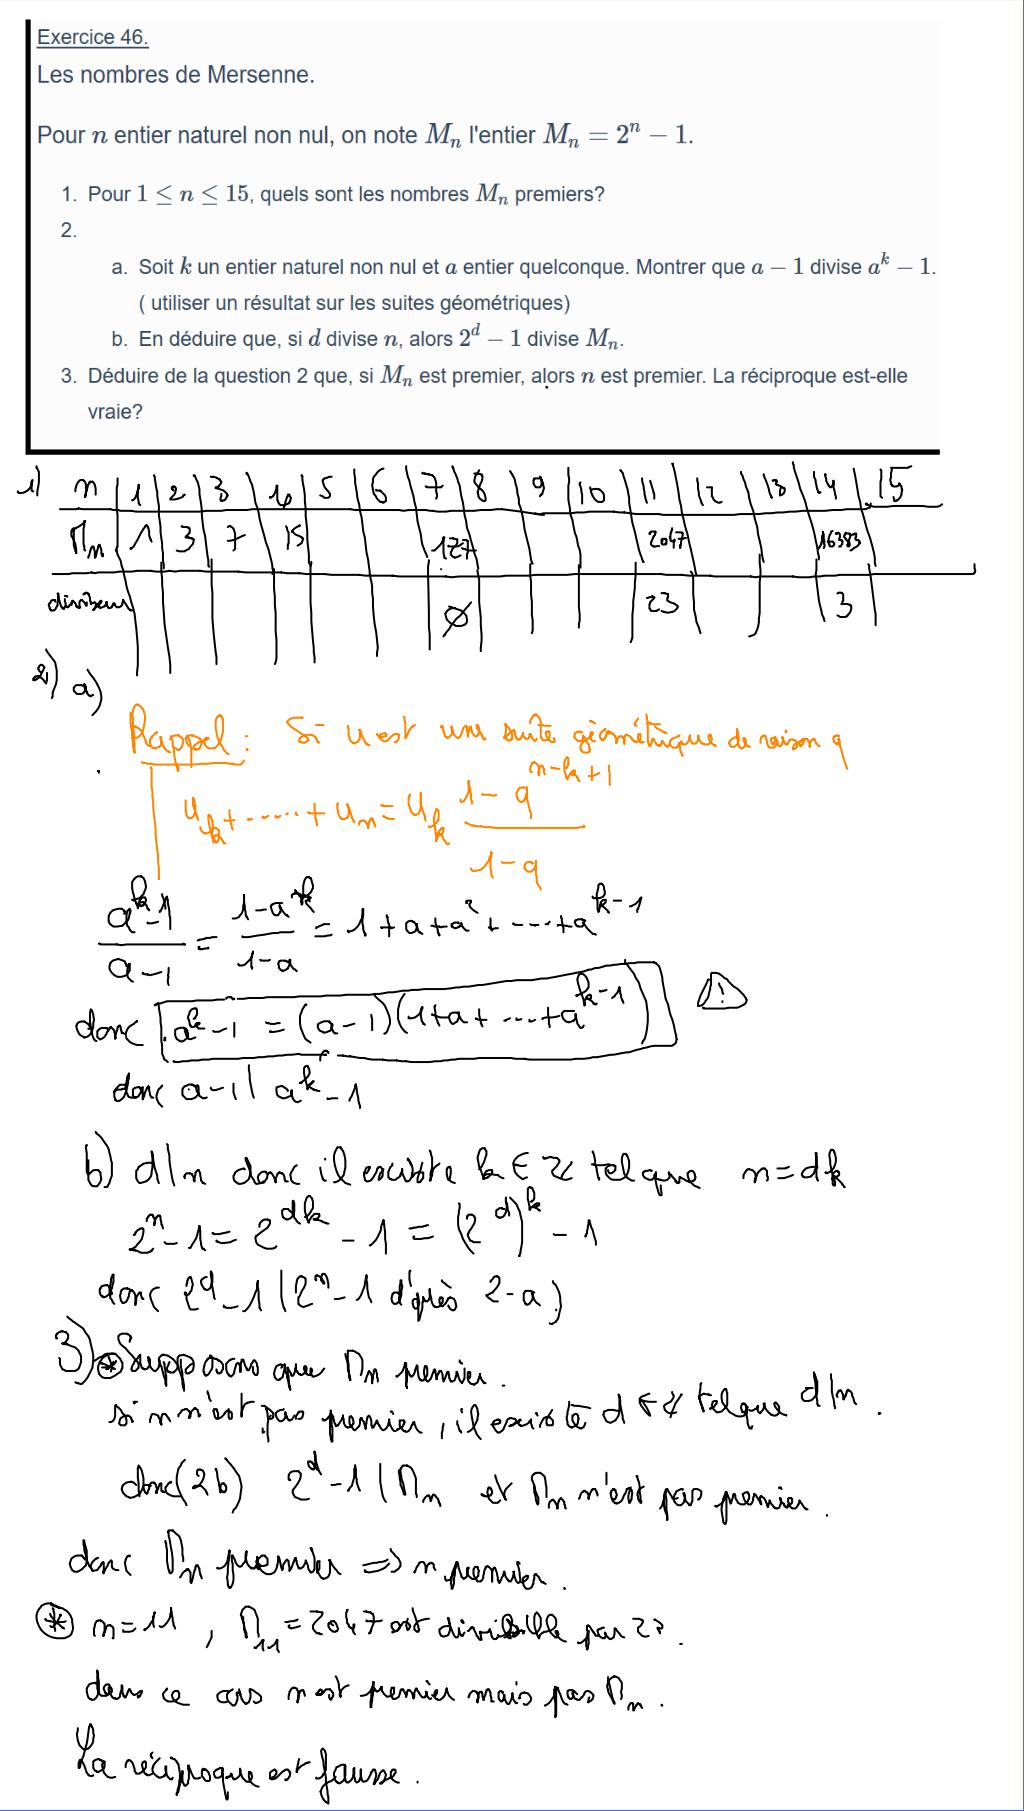 Exercice 46.
Les nombres de Mersenne.
Pour n entier naturel non nul, on note Mₙ l'entier Mₙ = 2ⁿ − 1.
1. Pour 1 ≤ n ≤ 15, quels sont les nombres Mₙ premiers?
2.
a. Soit k un entier naturel non nul et a entier quelconque. Montrer que a − 1 divise aᵏ − 1.
( utiliser un résultat sur les suites géométriques)
b. En déduire que, si d divise n, alors 2ᵈ − 1 divise Mₙ.
3. Déduire de la question 2 que, si Mₙ est premier, alors n est premier. La réciproque est-elle
vraie?
1) n | 1 | 2 | 3 | 4 | 5 | 6 | 7 | 8 | 9 | 10 | 11 | 12 | 13 | 14 | 15
Mₙ | 1 | 3 | 7 | 15 | 127 | 2047 | 16383
diviseur | ∅ | 23 | 3
2) a)
Rappel : Si u est une suite géométrique de raison q
u_k + ...... + u_n = u_k (1 − q^(n−k+1)) / (1 − q)
(aᵏ − 1)/(a − 1) = (1 − aᵏ)/(1 − a) = 1 + a + a² + ... + a^(k−1)
donc aᵏ − 1 = (a − 1)(1 + a + ... + a^(k−1)) ⚠
donc a − 1 | aᵏ − 1
b) d | n donc il existe k ∈ ℤ tel que n = dk
2ⁿ − 1 = 2^(dk) − 1 = (2ᵈ)ᵏ − 1
donc 2ᵈ − 1 | 2ⁿ − 1 d'après 2-a)
3) ⊛ Supposons que Mₙ premier.
si n n'est pas premier, il existe d ∈ ℤ tel que d | n.
donc (2b) 2ᵈ − 1 | Mₙ et Mₙ n'est pas premier.
donc Mₙ premier => n premier.
⊛ n = 11, M₁₁ = 2047 est divisible par 23.
dans ce cas n est premier mais pas Mₙ.
La réciproque est fausse.